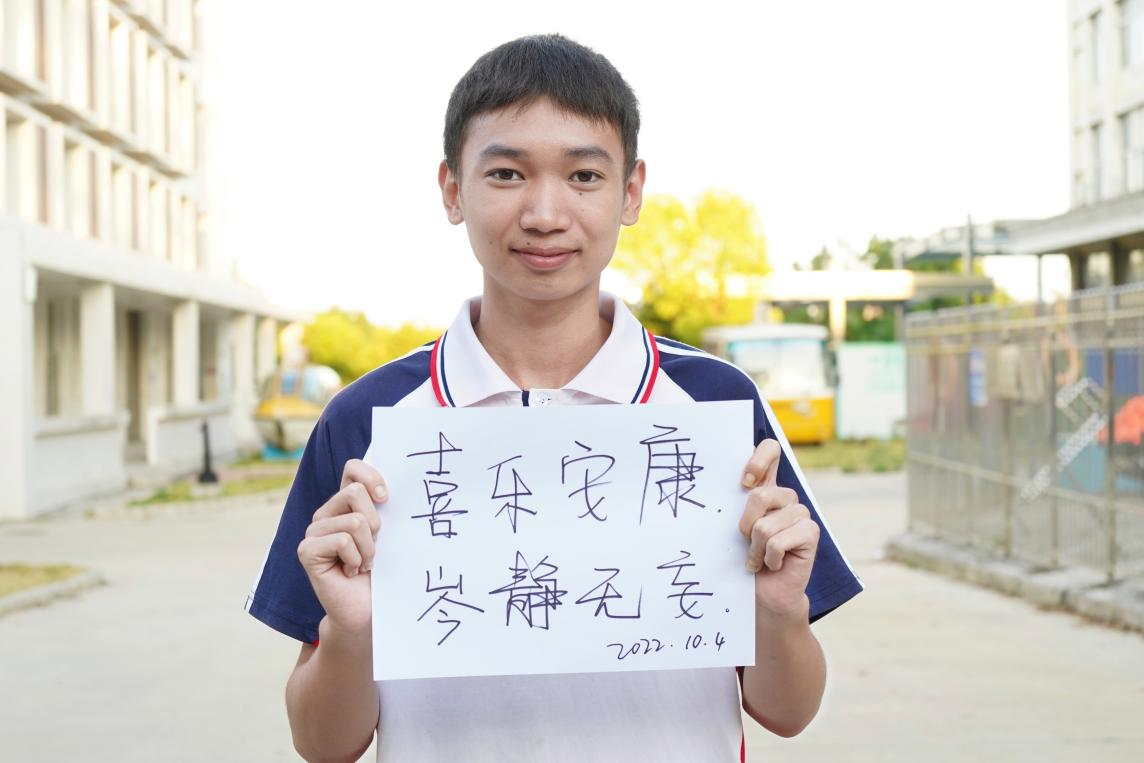 喜乐安康.
岑静无妄.
2022.10.4